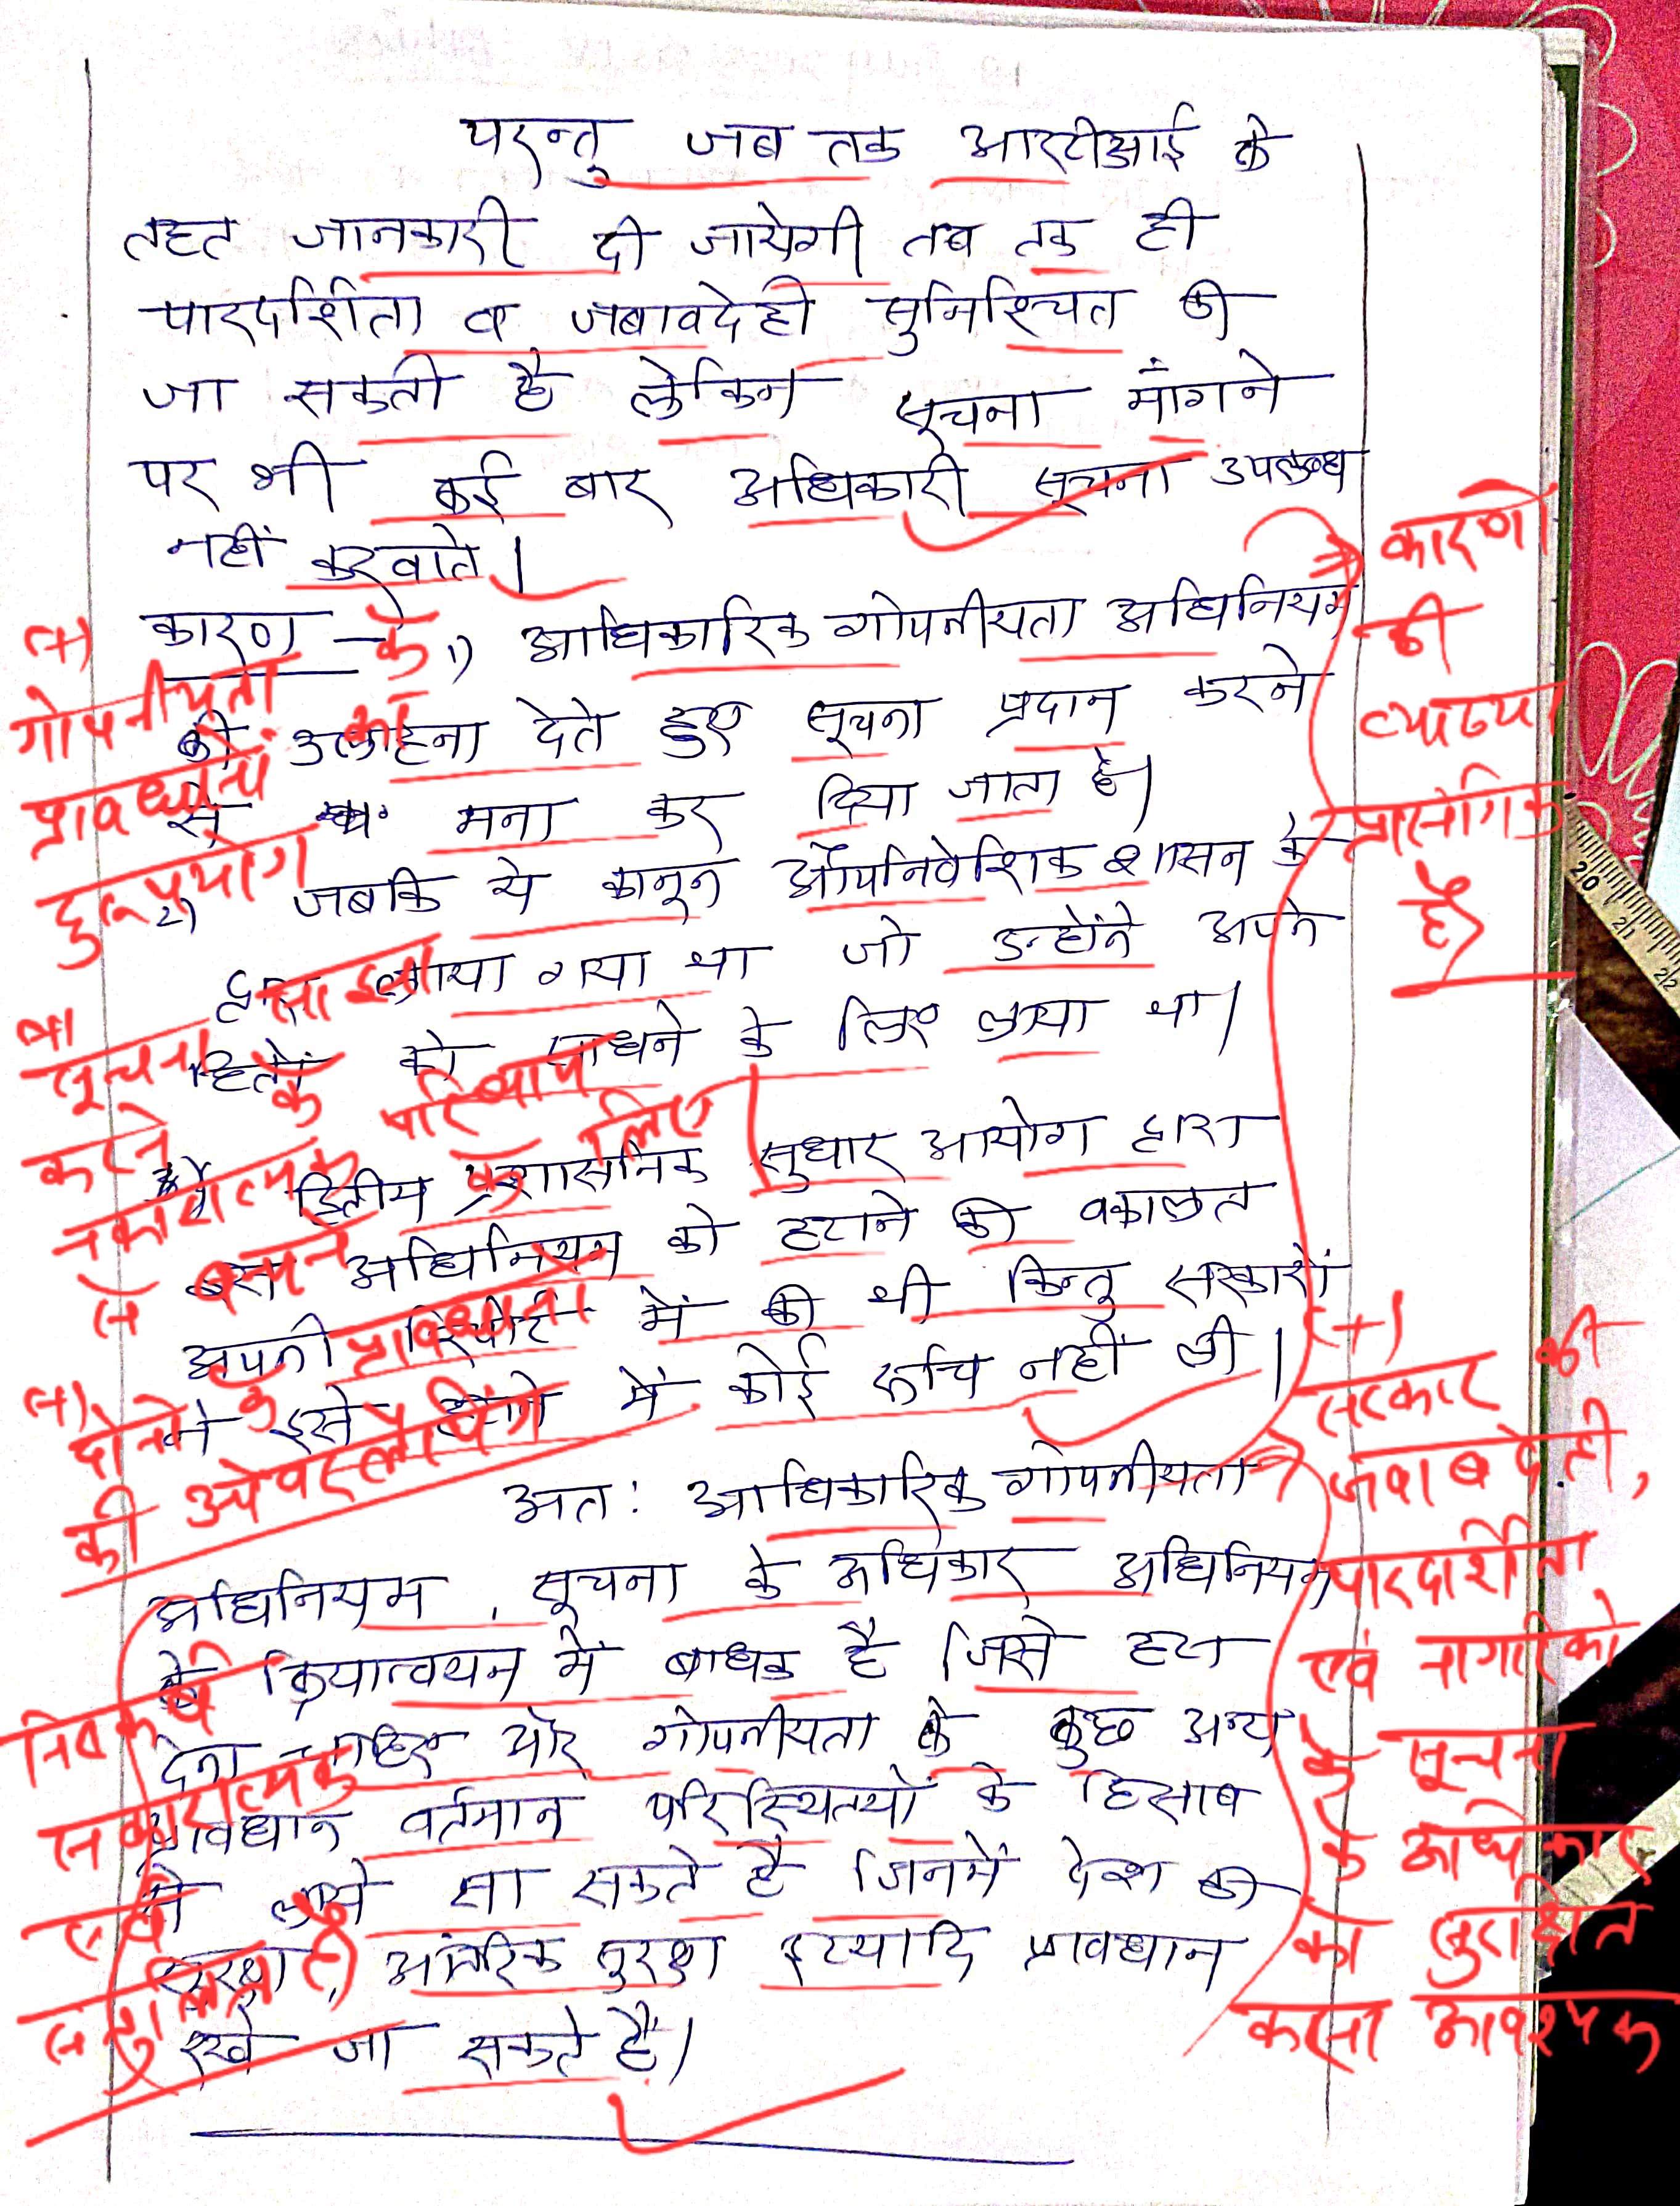 परन्तु जब तक आरटीआई के
तहत जानकारी दी जायेगी तब तक ही
पारदर्शिता व जबावदेही सुनिश्चित की
जा सकती है लेकिन सूचना माँगने
पर भी कई बार अधिकारी सूचना उपलब्ध
नहीं करवाते।
कारण - 1) आधिकारिक गोपनीयता अधिनियम
की उलाहना देते हुए सूचना प्रदान करने
से मना कर दिया जाता है।
2) जबकि ये कानून औपनिवेशिक शासन के
द्वारा लाया गया था जो उन्होंने अपने
हितों को साधने के लिए लाया था।
द्वितीय प्रशासनिक सुधार आयोग द्वारा
इस अधिनियम को हटाने की वकालत
अपनी रिपोर्ट में की थी किन्तु सरकारों
ने इसे हटाने में कोई रूचि नहीं ली।
अत: आधिकारिक गोपनीयता
अधिनियम, सूचना के अधिकार अधिनियम
के क्रियान्वयन में बाधक है जिसे हटा
देना चाहिए और गोपनीयता के कुछ अन्य
प्रावधान वर्तमान परिस्थितयों के हिसाब
से लाये जा सकते है जिनमें देश की
सुरक्षा, आंतरिक सुरक्षा इत्यादि प्रावधान
रखे जा सकते है।
(+)
गोपनीयता के
प्रावधानों का
दुरूपयोग
सूचना साझा
करने के
नकारात्मक परिणाम
से बचने के लिए
प्रावधानों
(+)
दोनों
की ओवरलैपिंग
निष्कर्ष
सकारात्मक
एवं
संतुलित है)
कारणों
की
व्याख्या
प्रासंगिक
है
(+)
सरकार की
जवाबदेही,
पारदर्शिता
एवं नागरिकों
के सूचना
के अधिकार
को सुरक्षित
करना आवश्यक
20 21 22